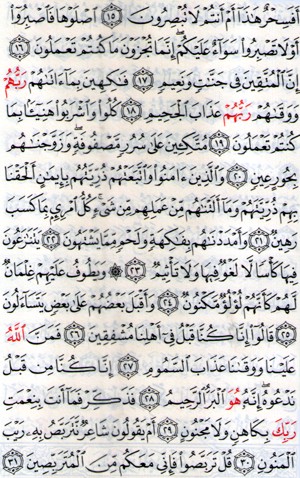 أَفَسِحْرٌ هَٰذَا أَمْ أَنتُمْ لَا تُبْصِرُونَ ١٥ ٱصْلَوْهَا فَٱصْبِرُوٓا۟
أَوْ لَا تَصْبِرُوا۟ سَوَآءٌ عَلَيْكُمْ إِنَّمَا تُجْزَوْنَ مَا كُنتُمْ تَعْمَلُونَ ١٦
إِنَّ ٱلْمُتَّقِينَ فِى جَنَّٰتٍ وَنَعِيمٍ ١٧ فَٰكِهِينَ بِمَآ ءَاتَىٰهُمْ رَبُّهُمْ
وَوَقَىٰهُمْ رَبُّهُمْ عَذَابَ ٱلْجَحِيمِ ١٨ كُلُوا۟ وَٱشْرَبُوا۟ هَنِيٓـًٔۢا بِمَا
كُنتُمْ تَعْمَلُونَ ١٩ مُتَّكِـِٔينَ عَلَىٰ سُرُرٍ مَّصْفُوفَةٍ وَزَوَّجْنَٰهُم
بِحُورٍ عِينٍ ٢٠ وَٱلَّذِينَ ءَامَنُوا۟ وَٱتَّبَعَتْهُمْ ذُرِّيَّتُهُم بِإِيمَٰنٍ أَلْحَقْنَا
بِهِمْ ذُرِّيَّتَهُمْ وَمَآ أَلَتْنَٰهُم مِّنْ عَمَلِهِم مِّن شَىْءٍ كُلُّ ٱمْرِئٍۭ بِمَا كَسَبَ
رَهِينٌ ٢١ وَأَمْدَدْنَٰهُم بِفَٰكِهَةٍ وَلَحْمٍ مِّمَّا يَشْتَهُونَ ٢٢ يَتَنَٰزَعُونَ
فِيهَا كَأْسًا لَّا لَغْوٌ فِيهَا وَلَا تَأْثِيمٌ ٢٣ ۞ وَيَطُوفُ عَلَيْهِمْ غِلْمَانٌ
لَّهُمْ كَأَنَّهُمْ لُؤْلُؤٌ مَّكْنُونٌ ٢٤ وَأَقْبَلَ بَعْضُهُمْ عَلَىٰ بَعْضٍ يَتَسَآءَلُونَ
٢٥ قَالُوٓا۟ إِنَّا كُنَّا قَبْلُ فِىٓ أَهْلِنَا مُشْفِقِينَ ٢٦ فَمَنَّ ٱللَّهُ
عَلَيْنَا وَوَقَىٰنَا عَذَابَ ٱلسَّمُومِ ٢٧ إِنَّا كُنَّا مِن قَبْلُ
نَدْعُوهُ إِنَّهُۥ هُوَ ٱلْبَرُّ ٱلرَّحِيمُ ٢٨ فَذَكِّرْ فَمَآ أَنتَ بِنِعْمَتِ
رَبِّكَ بِكَاهِنٍ وَلَا مَجْنُونٍ ٢٩ أَمْ يَقُولُونَ شَاعِرٌ نَّتَرَبَّصُ بِهِۦ رَيْبَ
ٱلْمَنُونِ ٣٠ قُلْ تَرَبَّصُوا۟ فَإِنِّى مَعَكُم مِّنَ ٱلْمُتَرَبِّصِينَ ٣١